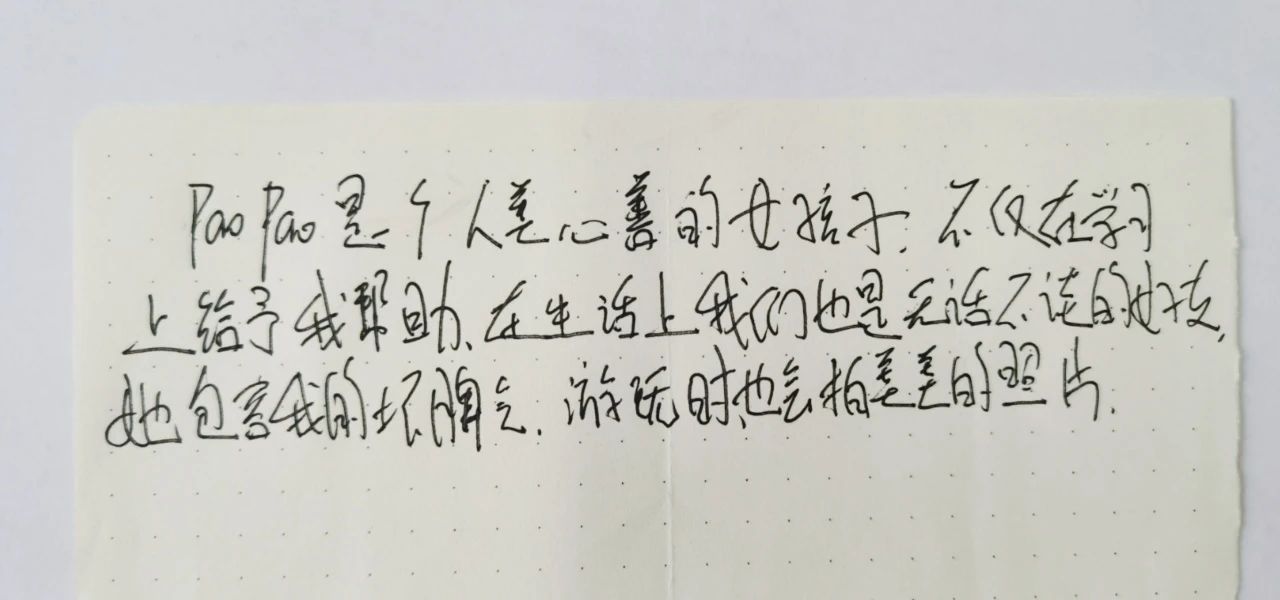 PaoPao是个人美心善的女孩子,不仅在学习
上给予我帮助,在生活上我们也是无话不谈的好友,
她包容我的坏脾气,游玩时也会拍美美的照片.